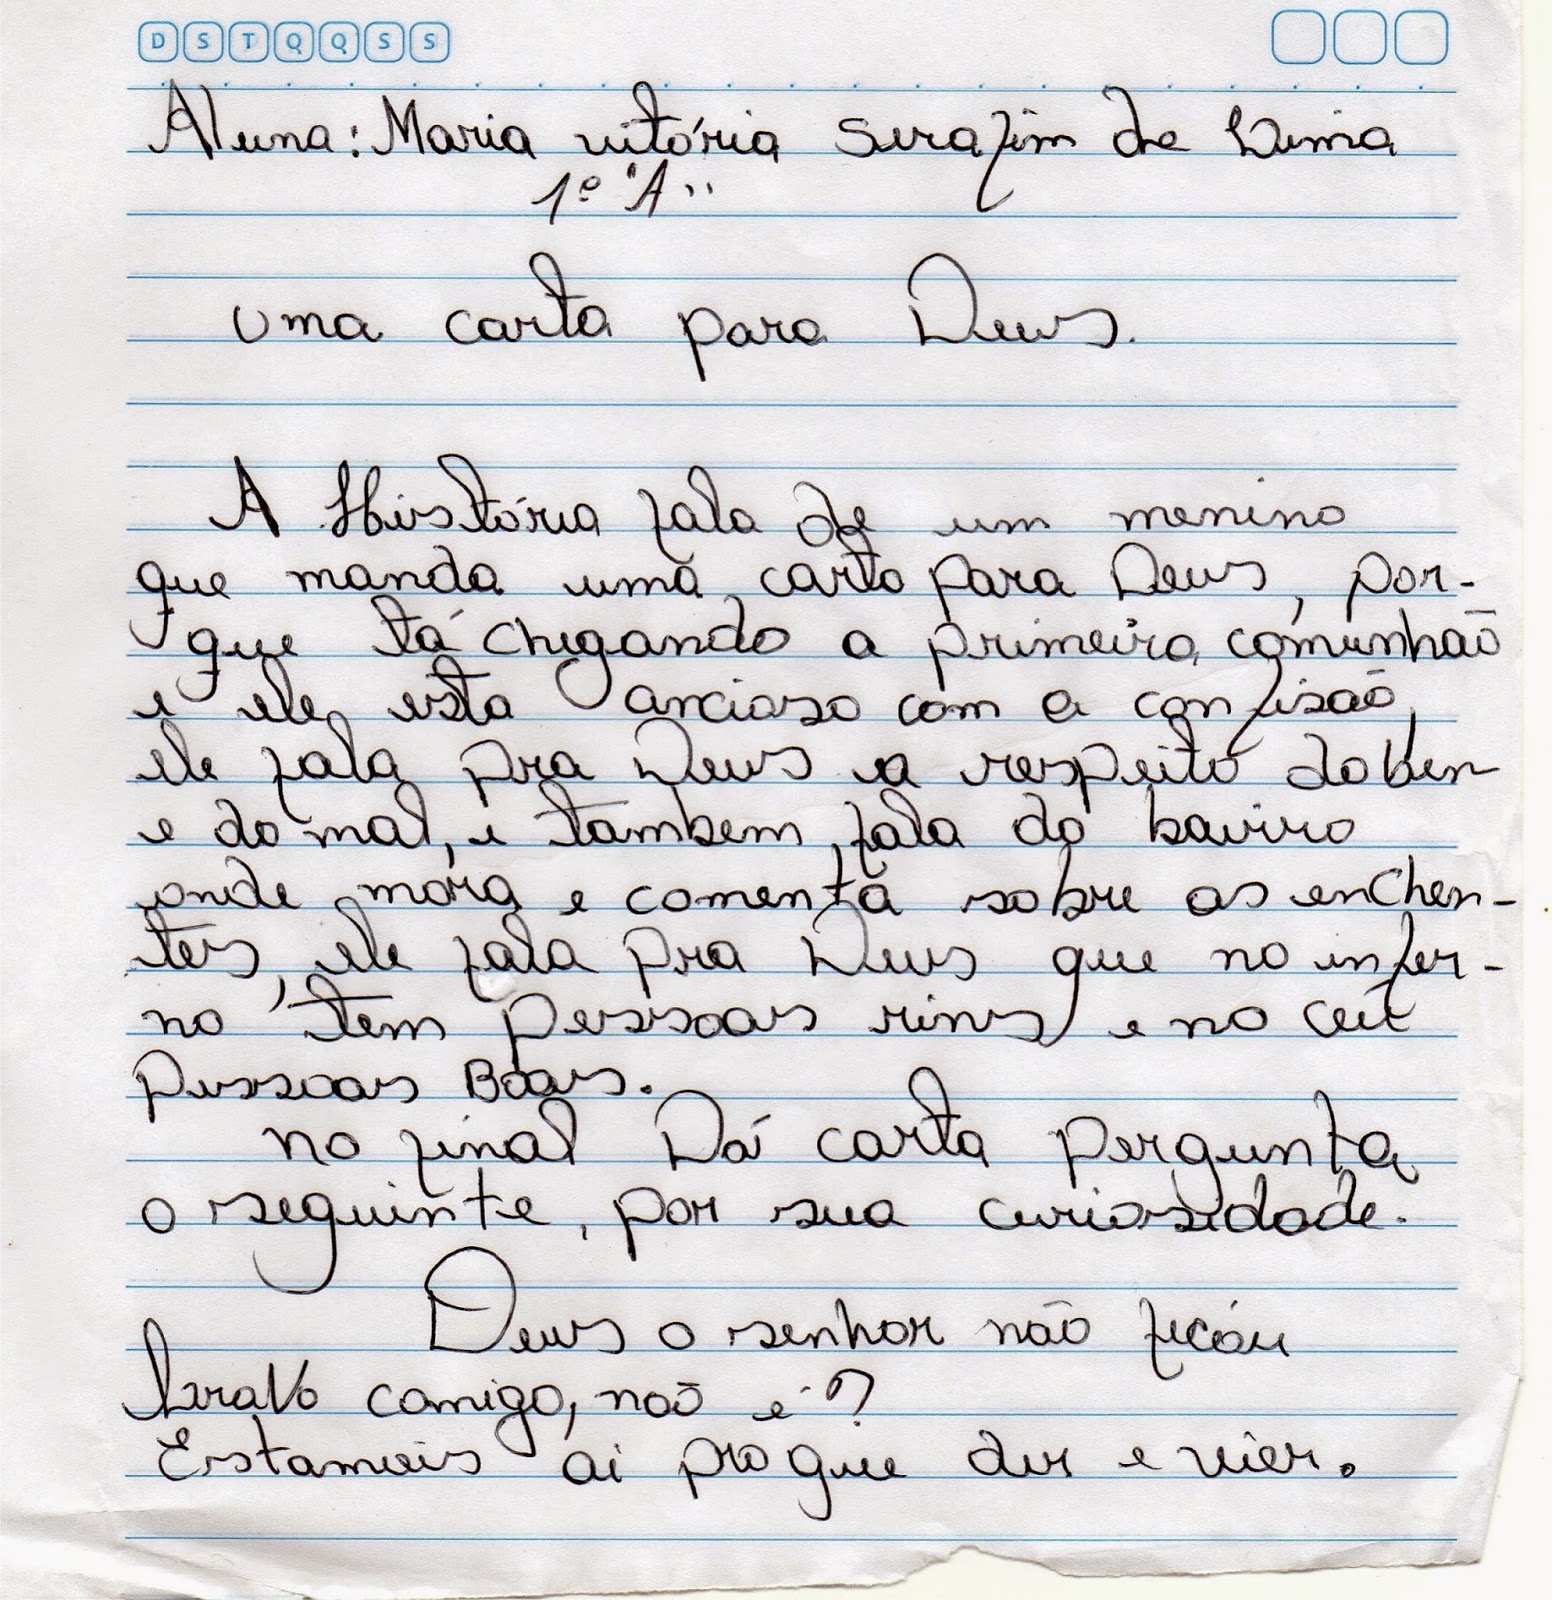 D S T Q Q S S
Aluna: Maria vitória Serafim de Lima
1º "A"
Uma carta para Deus.
A História fala de um menino
que manda uma carta para Deus, por-
que tá chegando a primeira comunhão
e ele esta ancioso com a confisão,
ele fala pra Deus a respeito do bem
e do mal, e tambem fala do bairro
onde mora e comenta sobre as enchen-
tes, ele fala pra Deus que no infer-
no tem pessoas rins e no céu
pessoas Boas.
No final Da carta pergunta
o seguinte, por sua curiosidade.
Deus o senhor não ficou
bravo comigo, não é?
Estamois ai pro que der e vier.